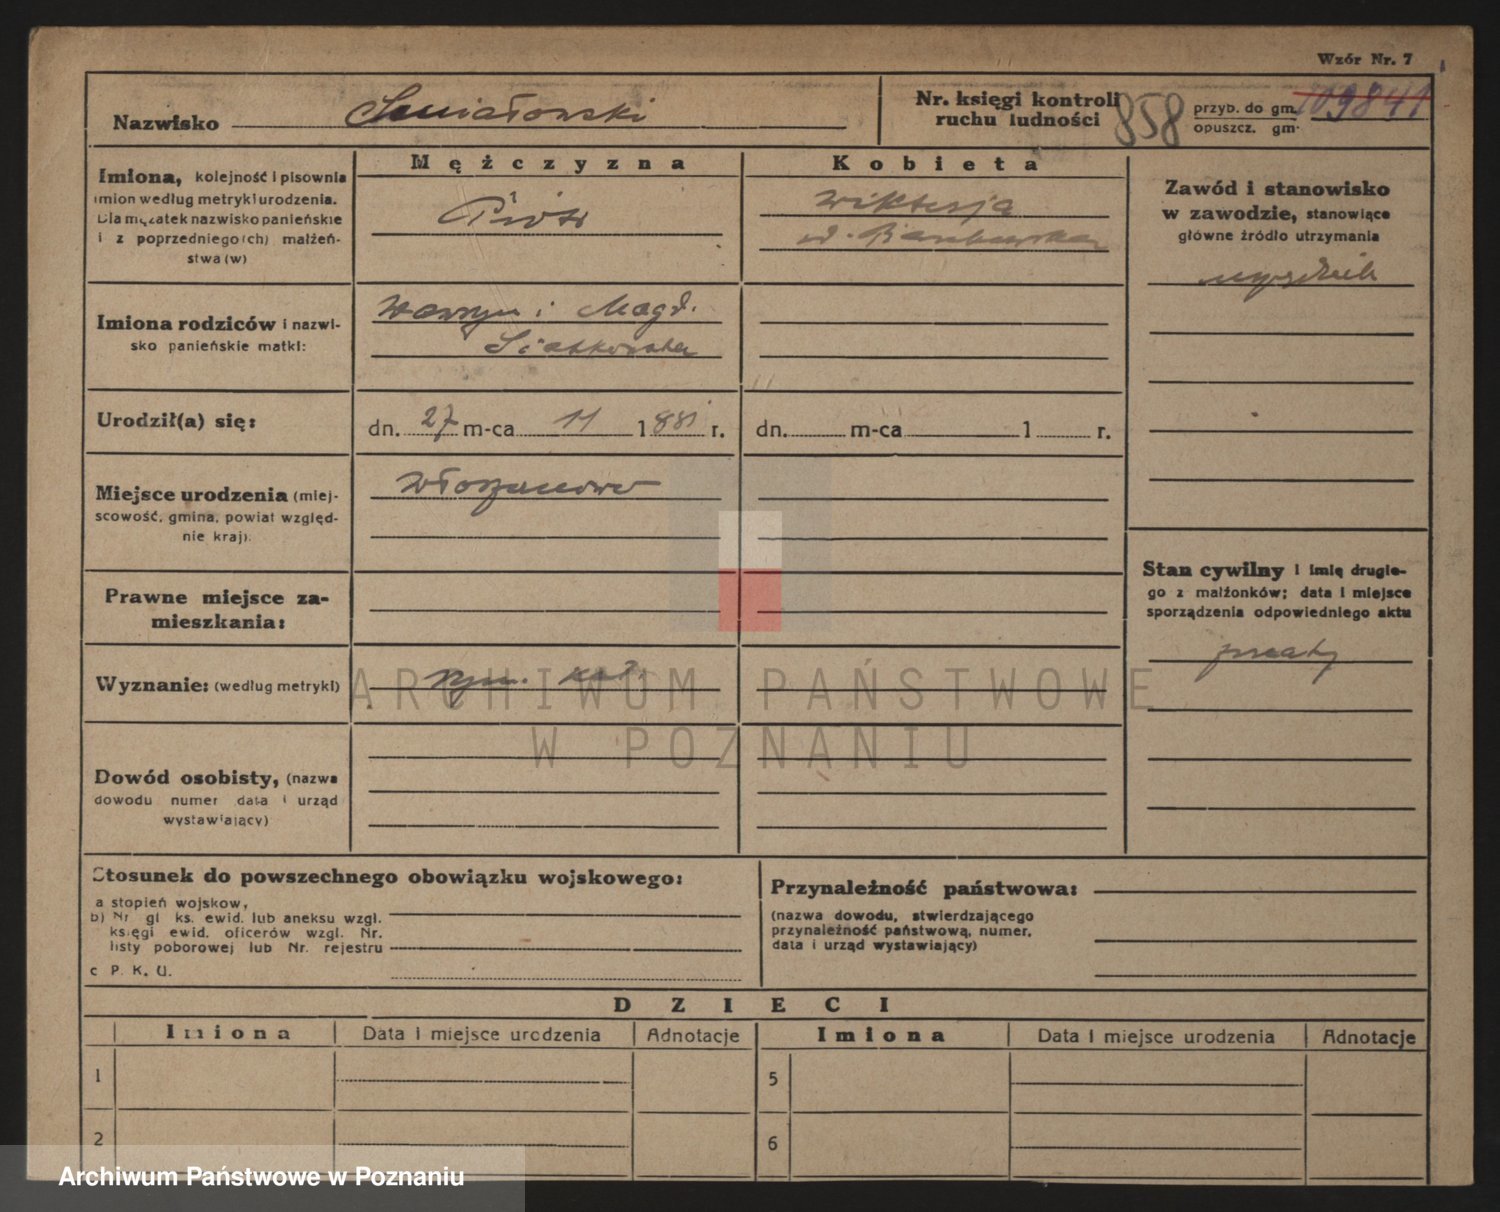 Wzór Nr. 7
Nazwisko
Nr. księgi kontroli
ruchu ludności
858
przyb. do gm.
opuszcz. gm.
109841
Imiona, kolejność i pisownia
imion według metryki urodzenia.
Dla mężatek nazwisko panieńskie
i z poprzedniego(ch) małżeń-
stwa (w)
Mężczyzna
Piotr
Kobieta
Wiktorja
Zawód i stanowisko
w zawodzie, stanowiące
główne źródło utrzymania
Imiona rodziców i nazwi-
sko panieńskie matki:
Wawrzyn i Magd.
Urodził(a) się:
dn. 27 m-ca 11 1881 r.
dn. m-ca 1 r.
Miejsce urodzenia (miej-
scowość, gmina, powiat względ-
nie kraj).
Włoszanowo
Prawne miejsce za-
mieszkania:
Stan cywilny i imię drugie-
go z małżonków; data i miejsce
sporządzenia odpowiedniego aktu
Wyznanie: (według metryki)
rzym. kat.
Dowód osobisty, (nazwa
dowodu numer data i urząd
wystawiający)
Stosunek do powszechnego obowiązku wojskowego:
a stopień wojskow,
b) Nr gł ks. ewid. lub aneksu wzgl.
księgi ewid. oficerów wzgl. Nr.
listy poborowej lub Nr. rejestru
c P. K. U.
Przynależność państwowa:
(nazwa dowodu, stwierdzającego
przynależność państwową, numer,
data i urząd wystawiający)
DZIECI
Imiona Data i miejsce urodzenia Adnotacje Imiona Data i miejsce urodzenia Adnotacje
1 5
2 6
ARCHIWUM PAŃSTWOWE
W POZNANIU
Archiwum Państwowe w Poznaniu